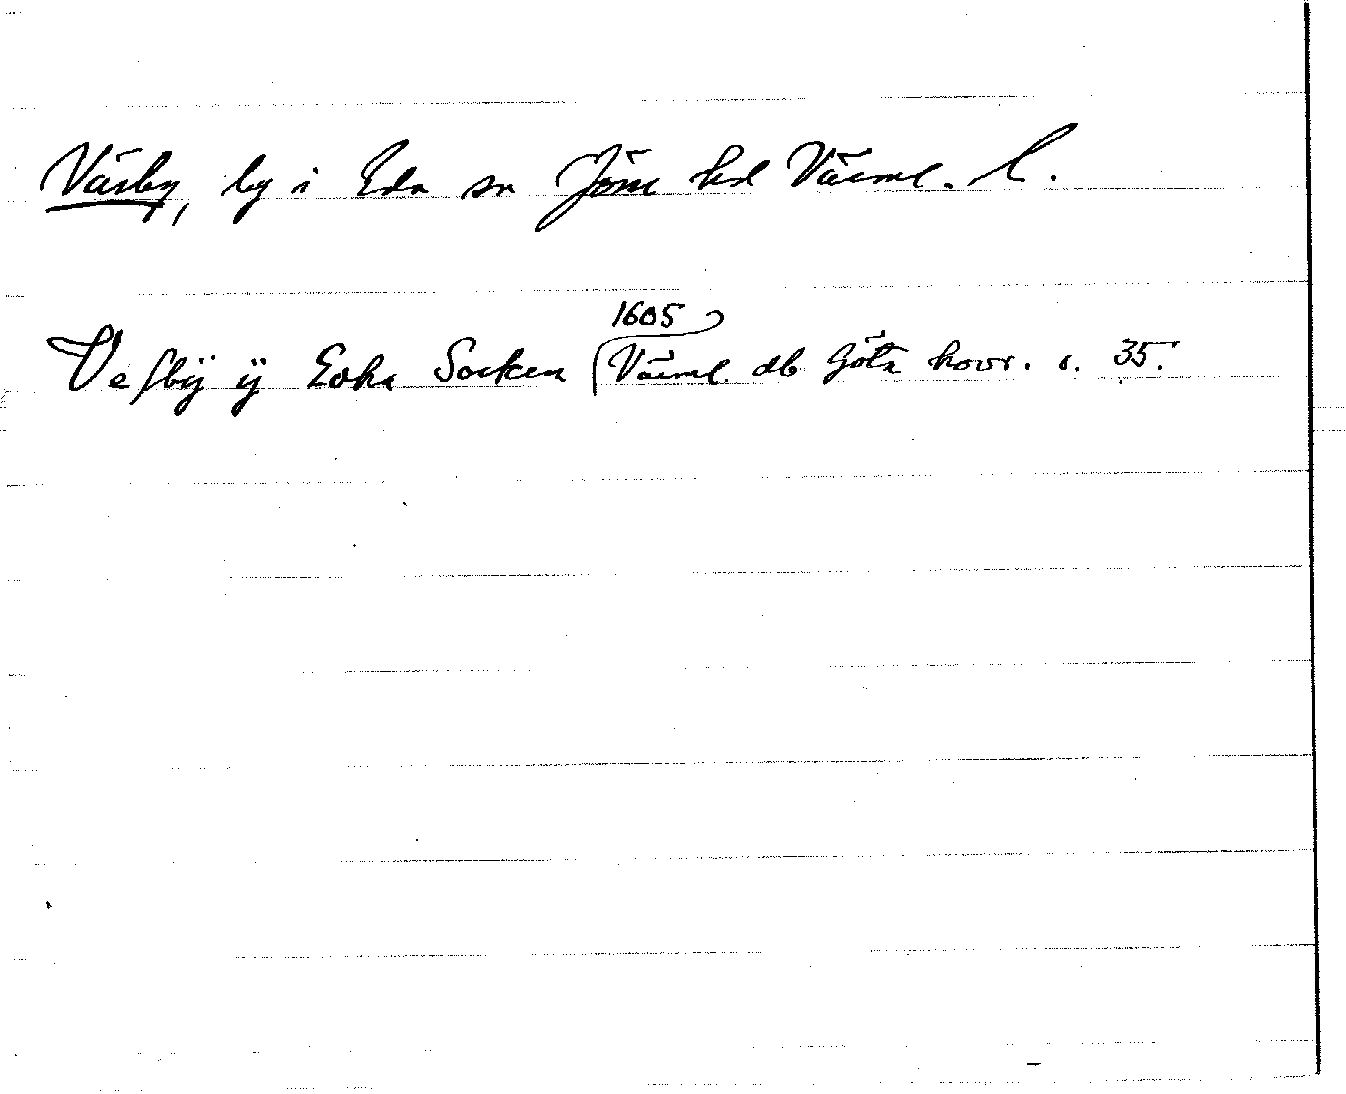 Väsby, by i Eda sn Jösse hd Värml. l.
1605
Vesbÿ ÿ Edha Socken Värml. db Göta hovr. s. 35.